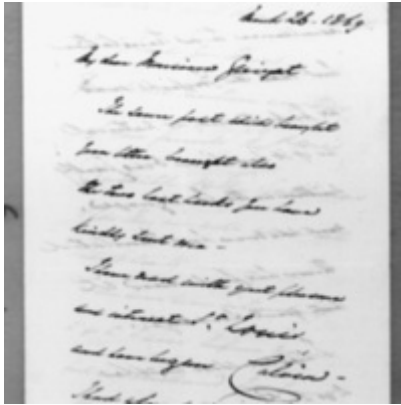 March 26. 1869
My dear Monsieur Guizot
The same post which brought
your letter brought also
the two last books you have
kindly sent me -
I have read with great pleasure
and interest St. Louis
and have begun Calvin -